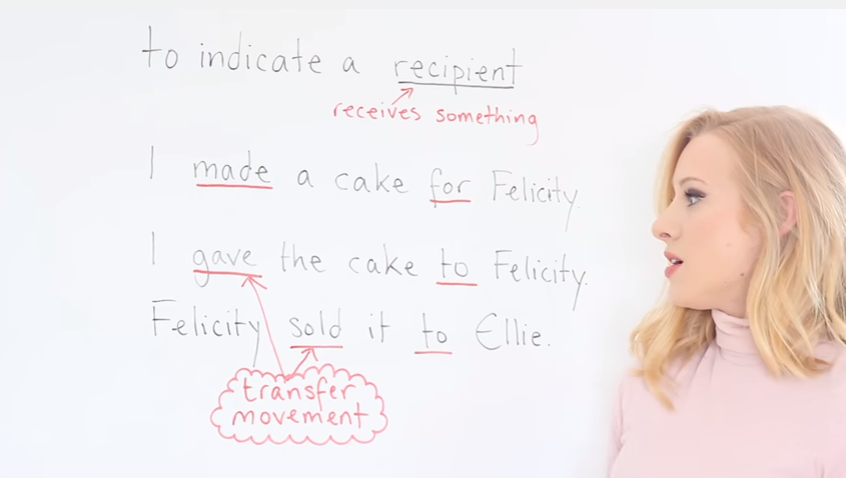 to indicate a recipient
receives something
I made a cake for Felicity.
I gave the cake to Felicity.
Felicity sold it to Ellie.
transfer
movement